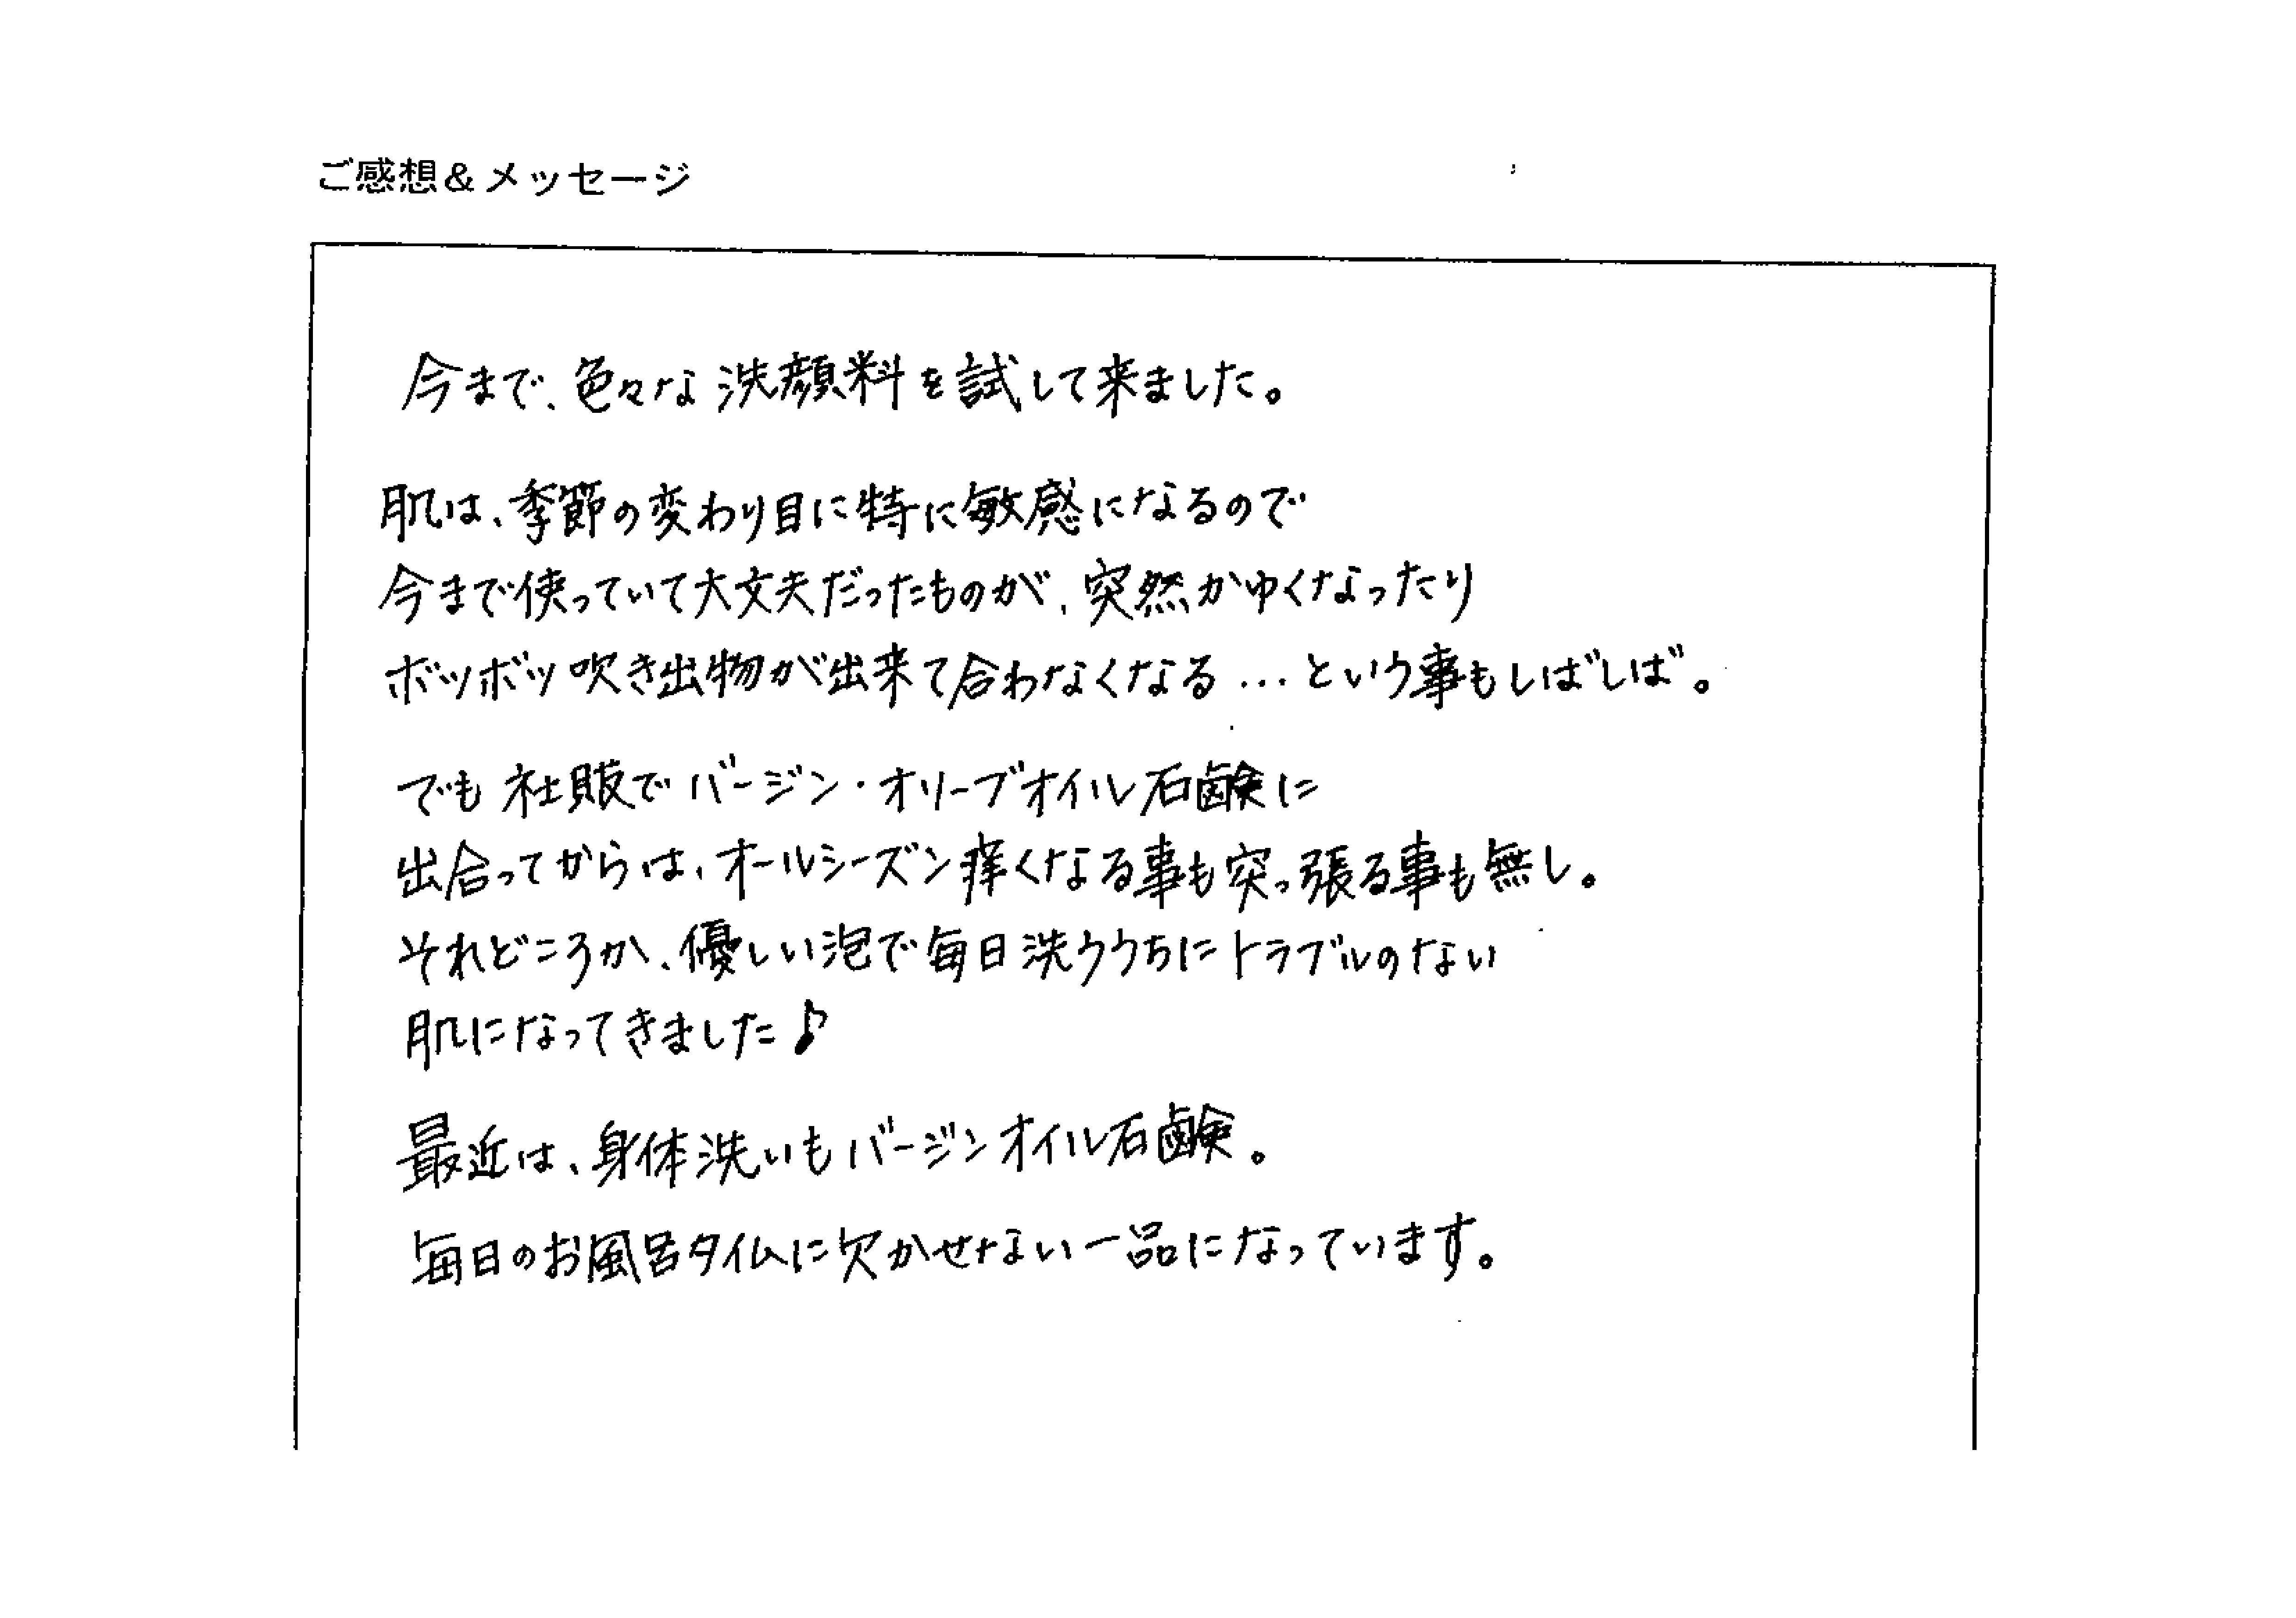 ご感想&メッセージ
今まで、色々な洗顔料を試して来ました。
肌は、季節の変わり目に特に敏感になるので
今まで使っていて大丈夫だったものが、突然かゆくなったり
ボツボツ吹き出物が出来て合わなくなる…という事もしばしば。
でも社販でバージン・オリーブオイル石鹸に
出合ってからは、オールシーズン痒くなる事も突っ張る事も無し。
それどころか、優しい泡で毎日洗ううちにトラブルのない
肌になってきました♪
最近は、身体洗いもバージンオイル石鹸。
毎日のお風呂タイムに欠かせない一品になっています。